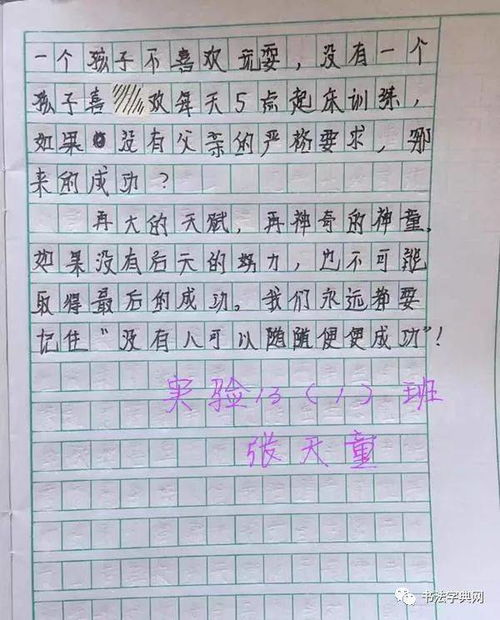 一个孩子不喜欢玩耍，没有一个
孩子喜欢每天5点起床训练，
如果没有父亲的严格要求，哪
来的成功？
再大的天赋，再神奇的神童，
如果没有后天的努力，也不可能
取得最后的成功。我们永远都要
记住“没有人可以随随便便成功”！
实验13（1）班
张天童
书法字典网